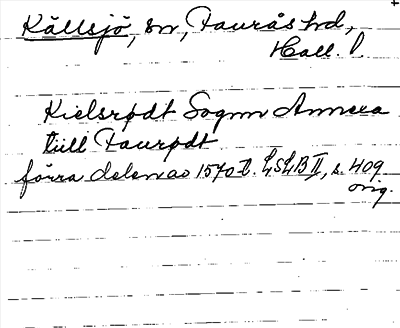 Källsjö, sn, Faurås hd,
Hall. l.
Kielsrødt Sognn Annexa
till Faurødt
förra delen av 1570-t. LSLB II, s. 409
orig.